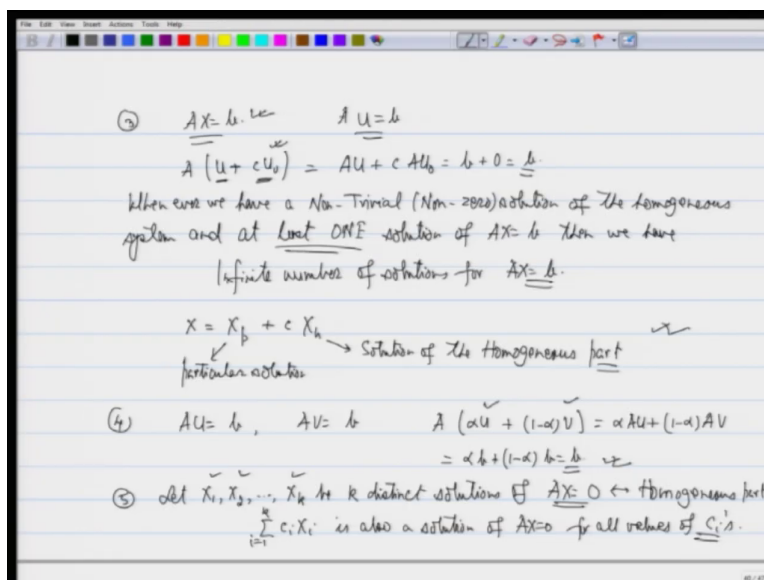 File Edit View Insert Actions Tools Help
③ AX = b. A U = b
A (U + cU₀) = AU + c AU₀ = b + 0 = b.
When ever we have a Non-Trivial (Non-zero) solution of the homogeneous
system and at least ONE solution of AX = b then we have
Infinite number of solutions for AX = b.
X = Xp + c Xh
particular solution → Solution of the Homogeneous part
④ AU = b, AV = b A (αU + (1-α)V) = αAU + (1-α)AV
= αb + (1-α)b = b
⑤ Let X₁, X₂, ..., Xk be k distinct solutions of AX = 0 ↔ Homogeneous part
∑ᵢ₌₁ᵏ cᵢXᵢ is also a solution of AX=0 for all values of cᵢ's.